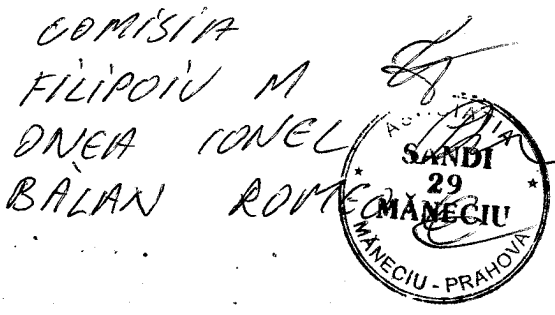 COMISIA
FILIPOIU M
ONEA IONEL
BĂLAN ROMEO
ASOCIAȚIA
SANDI
29
MĂNECIU
MĂNECIU - PRAHOVA